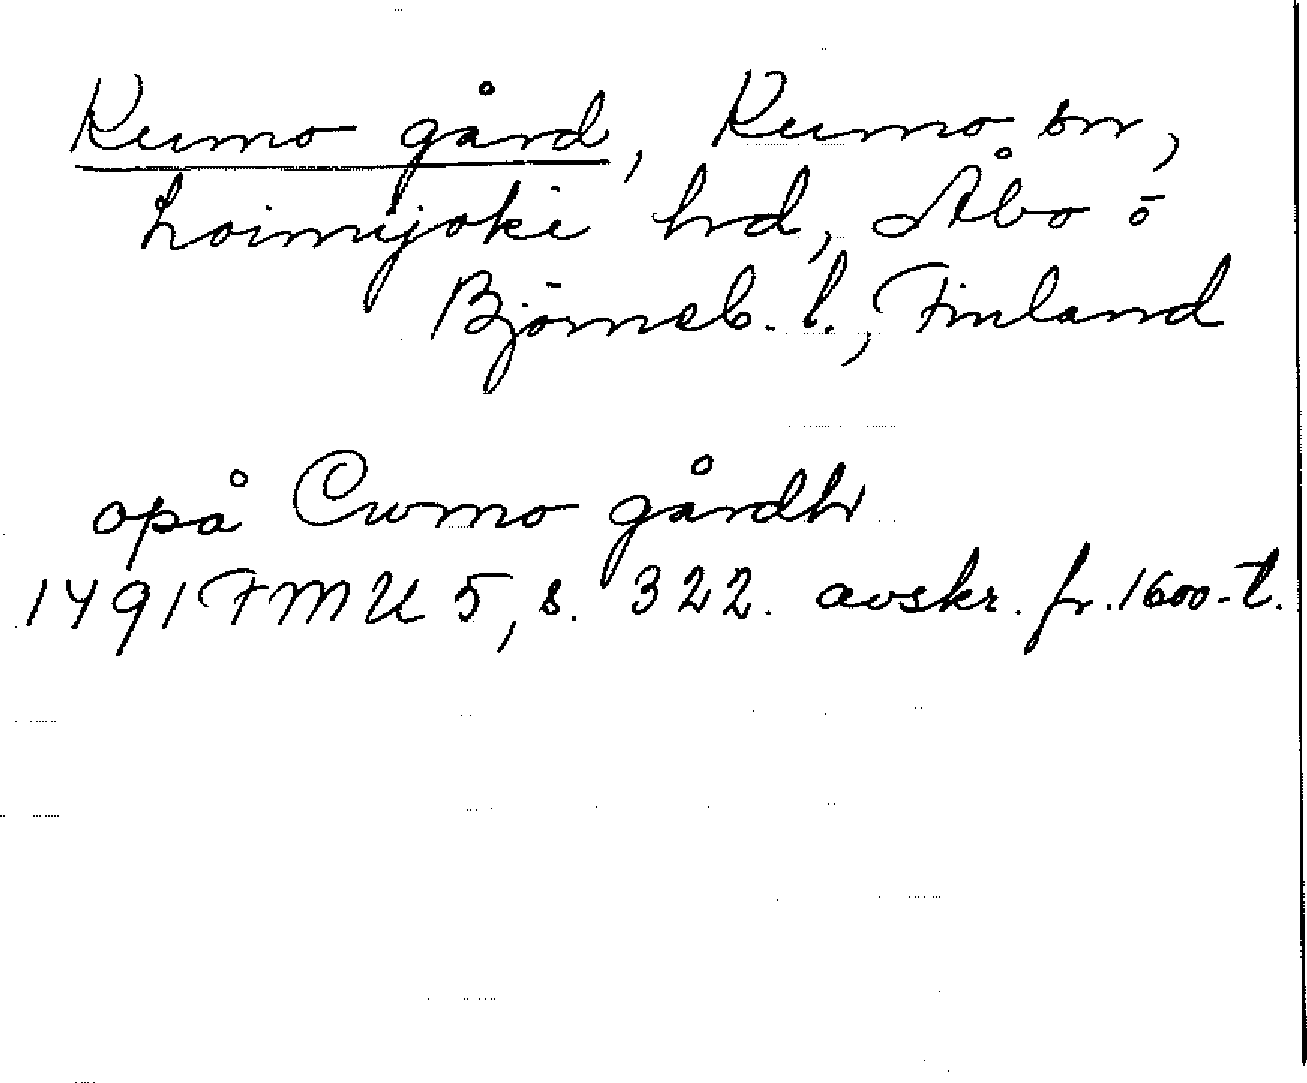 Kumo gård, Kumo sn,
Loimijoki hd, Åbo o
Björneb. l., Finland
opå Cwmo gårdh
1491 FMU 5, s. 322. avskr. fr. 1600-t.